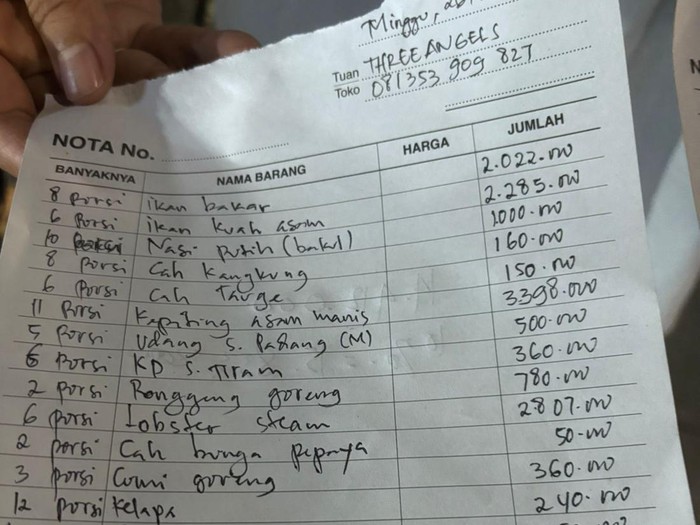 Minggu,
Tuan THREE ANGELS
Toko 081353 909 827
NOTA No.
BANYAKNYA NAMA BARANG HARGA JUMLAH
8 Porsi ikan bakar 2.022.000
6 Porsi ikan kuah asam 2.285.000
10 Nasi putih (bakul) 1000.000
8 Porsi Cah Kangkung 160.000
6 Porsi Cah Tauge 150.000
11 Porsi Kepiting asam manis 3398.000
5 Porsi Udang S. Padang (M) 500.000
6 Porsi KP S. Tiram 360.000
2 Porsi Ronggeng goreng 780.000
6 Porsi Lobster steam 2807.000
2 Porsi Cah bunga pepaya 50.000
3 Porsi Cumi goreng 360.000
12 Porsi Kelapa 240.000